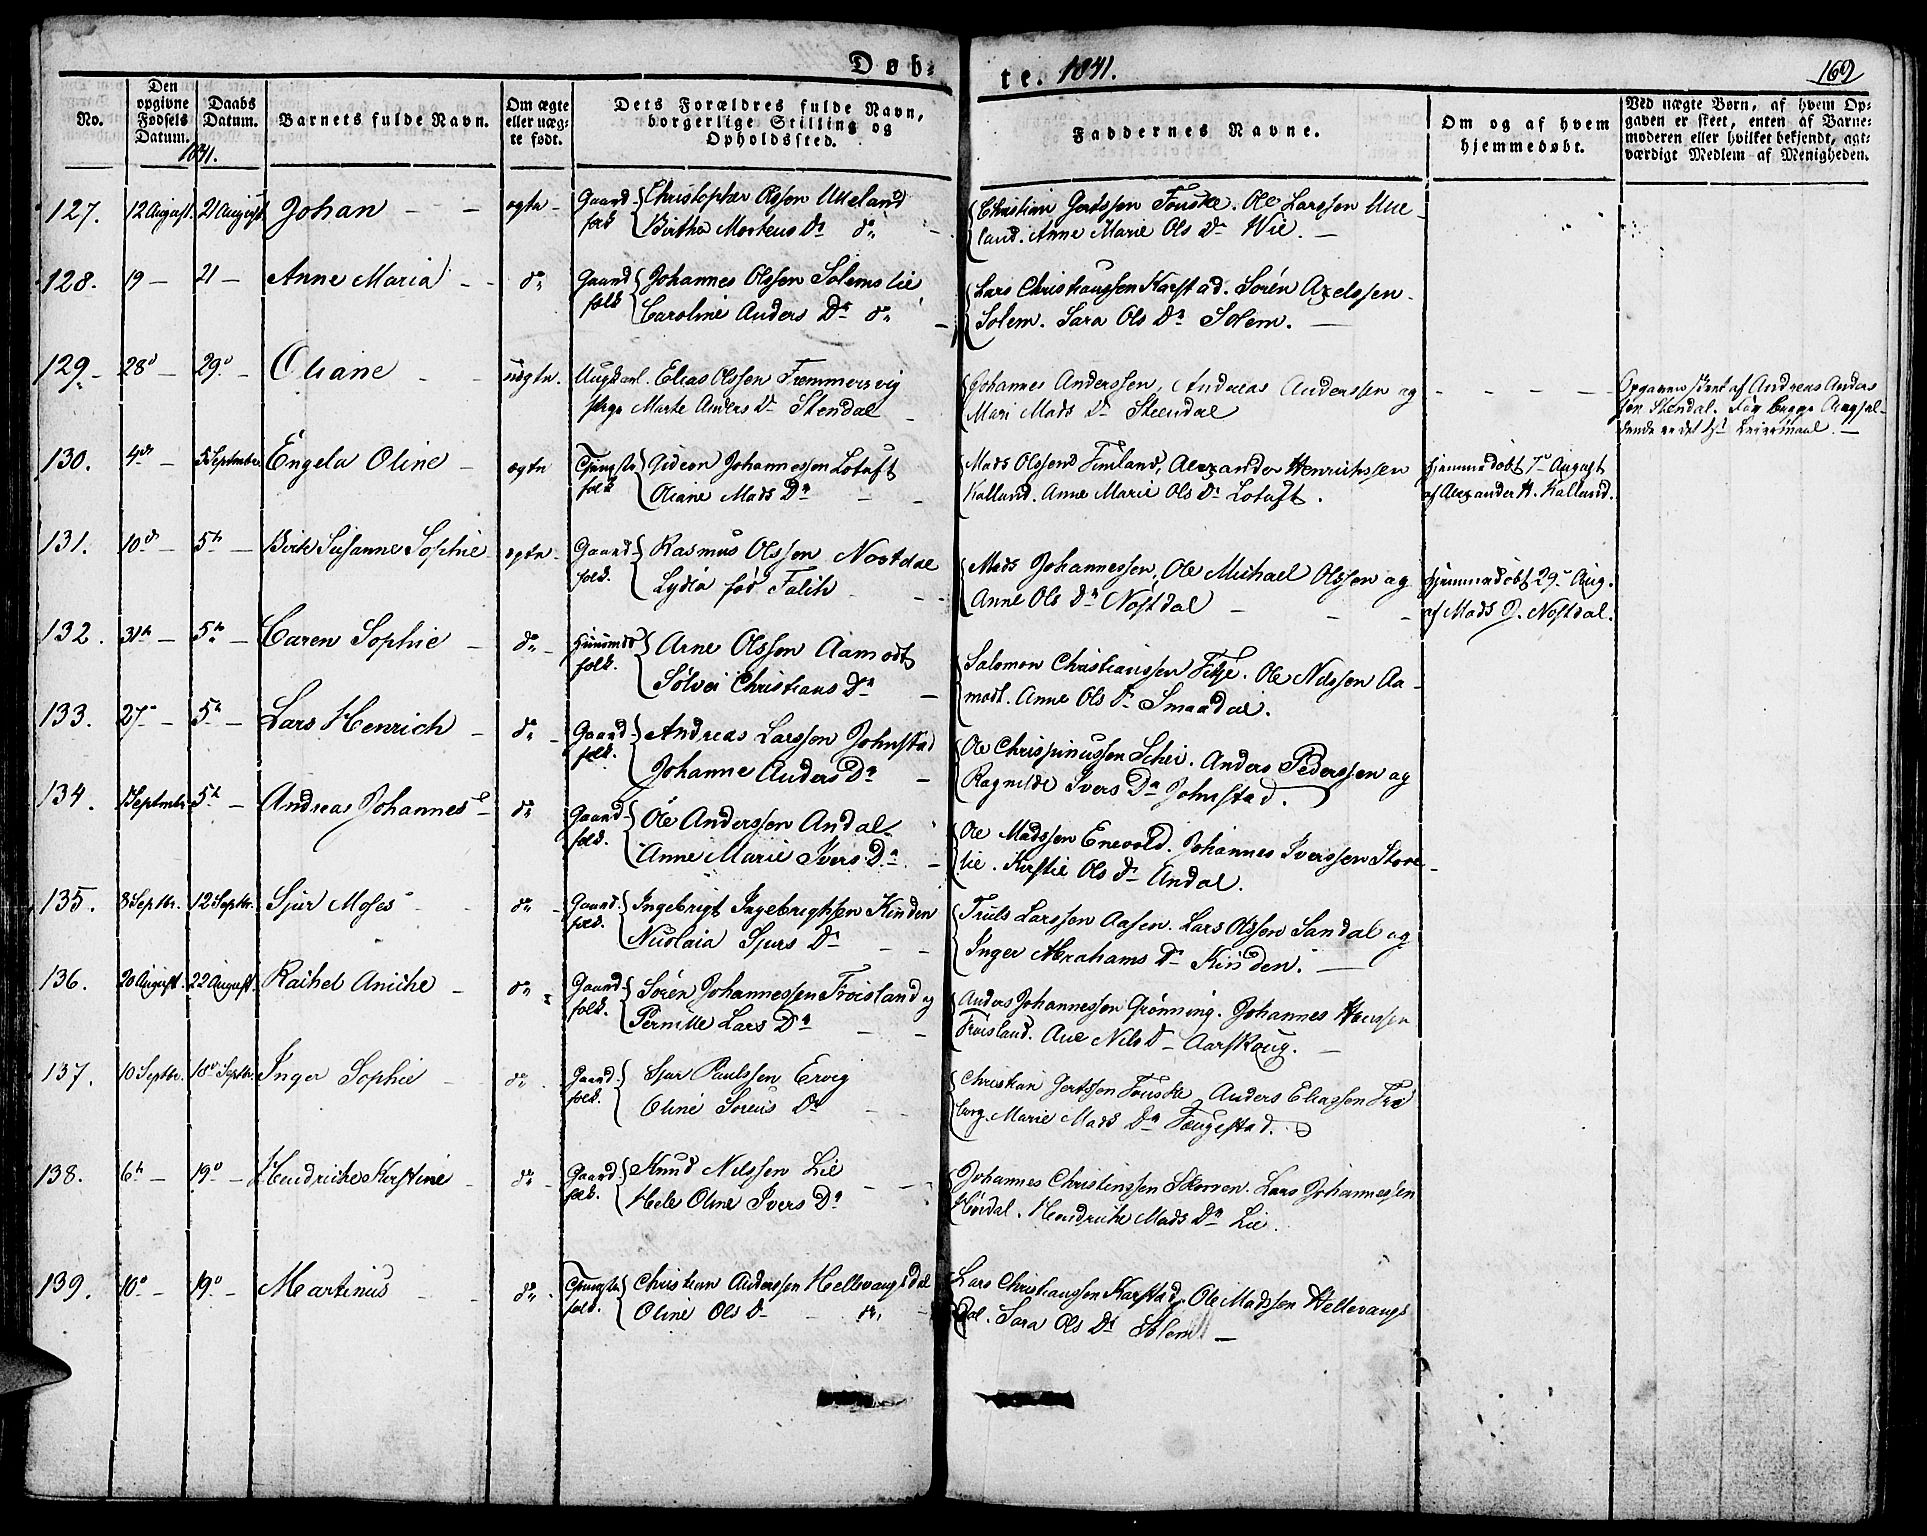 Døb- te. 1841. 169
No.
Den opgivne Fødsels Datum. 1841.
Daabs Datum.
Barnets fulde Navn.
Om ægte eller uæg- te født.
Dets Forældres fulde Navn, borgerlige Stilling og Opholdssted.
Faddernes Navne.
Om og af hvem hjemmedøbt.
Ved uægte Børn, af hvem Op- gaven er skeet, enten af Barne- moderen eller hvilket bekjendt, agt- værdigt Medlem af Menigheden.
127. 12 August. 21 August. Johan ægte Gaard folk Christopher Olssen
Birthe Mortens Dr do
Christian Gertssen Fouske. Ole Larssen
land. Anne Marie Ols Dr Wie.
128. 19 21 Anne Maria do Gaard folk Johannes Olssen Solemslie
Caroline Anders Dr do
Lars Christianssen Karstad. Søren Axelssen
Solem. Sara Ols Dr Solem.
129 28 29 Oliane uægte. Ungkarl. Elias Olssen Fremmersvig
pige Marte Anders Dr Stendal
Johannes Anderssen, Andreas Anderssen og
Mari Mads Dr Steendal
Opgaven skeet af Andreas Anders
sen Stendal. For begge Angjæl-
dende er det 1st Leiermaal.
130. 4de 5 Septembr Engela Oline ægte folk Gideon Johannessen Lotoft
Oliane Mads Dr
Mads Olssen Timland, Alexander Henrichssen
Kalland. Anne Marie Ols Dr Lotoft.
Hjemmedøbt 7 August
af Alexander H. Kalland.
131. 10de 5te Birte Susanne Sophie ægte Gaard folk. Rasmus Olssen Nostdal
Lydia fød Falch
Mads Johannessen, Ole Michael Olssen og
Anne Ols Dr Nostdal
Hjemmedøbt 29 Aug.
af Mads J. Nostdal.
132. 31te 5te Caren Sophie do folk. Arne Olssen Aamodt
Sølvei Christians Dr
Salomon Christianssen Fitje. Ole Nilssen Aa-
modt. Anne Ols Dr Smaadal.
133. 27 5te Lars Henrich do Gaard folk. Andreas Larssen Johnstad
Johanne Anders Dr
Ole Chrispinussen Schei. Anders Pederssen og
Ragnilde Ivers Dr Johnstad.
134. 1 Septembr 5te Andreas Johannes do Gaard folk. Ole Anderssen Andal
Anne Marie Ivers Dr
Ole Madssen Enevold. Johannes Iverssen Store-
lie. Kirstie Ols Dr Andal.
135. 8 Septbr. 12 Septbr. Sjur Moses do Gaard folk. Ingebrigt Ingebrigtssen Kinden
Nicolaia Sjurs Dr
Truls Larssen Aasen. Lars Olssen Sandal og
Inger Abrahams Dr Kinden.
136. 20 August. 22 August. Rachel Aniche do Gaard folk. Søren Johannessen Froisland og
Pernille Lars Dr
Anders Johannessen Grønning. Johannes Hanssen
Froisland. Ane Nils D Aarskoug.
137. 10 Septbr. 18 Septbr. Inger Sophie do Gaard folk. Sjur Paulssen Ervig
Oline Sørens Dr
Christian Gertssen Fouske, Anders Eliassen Fræ
borg. Marie Mads Dr Faugestad.
138. 6te 19 Hendriche Kirstine do Gaard folk. Knud Nilssen Lie
Hele Oline Ivers Dr
Johannes Christenssen Skorven. Lars Johannessen
Hørdal. Hendriche Mads Dr Lie.
139. 10 19 Martinus do folk. Christian Anderssen Hellevangsdal
Oline Ols Dr
Lars Christianssen Karstad, Ole Madssen Hellevangs
dal. Sara Ols Dr Solem